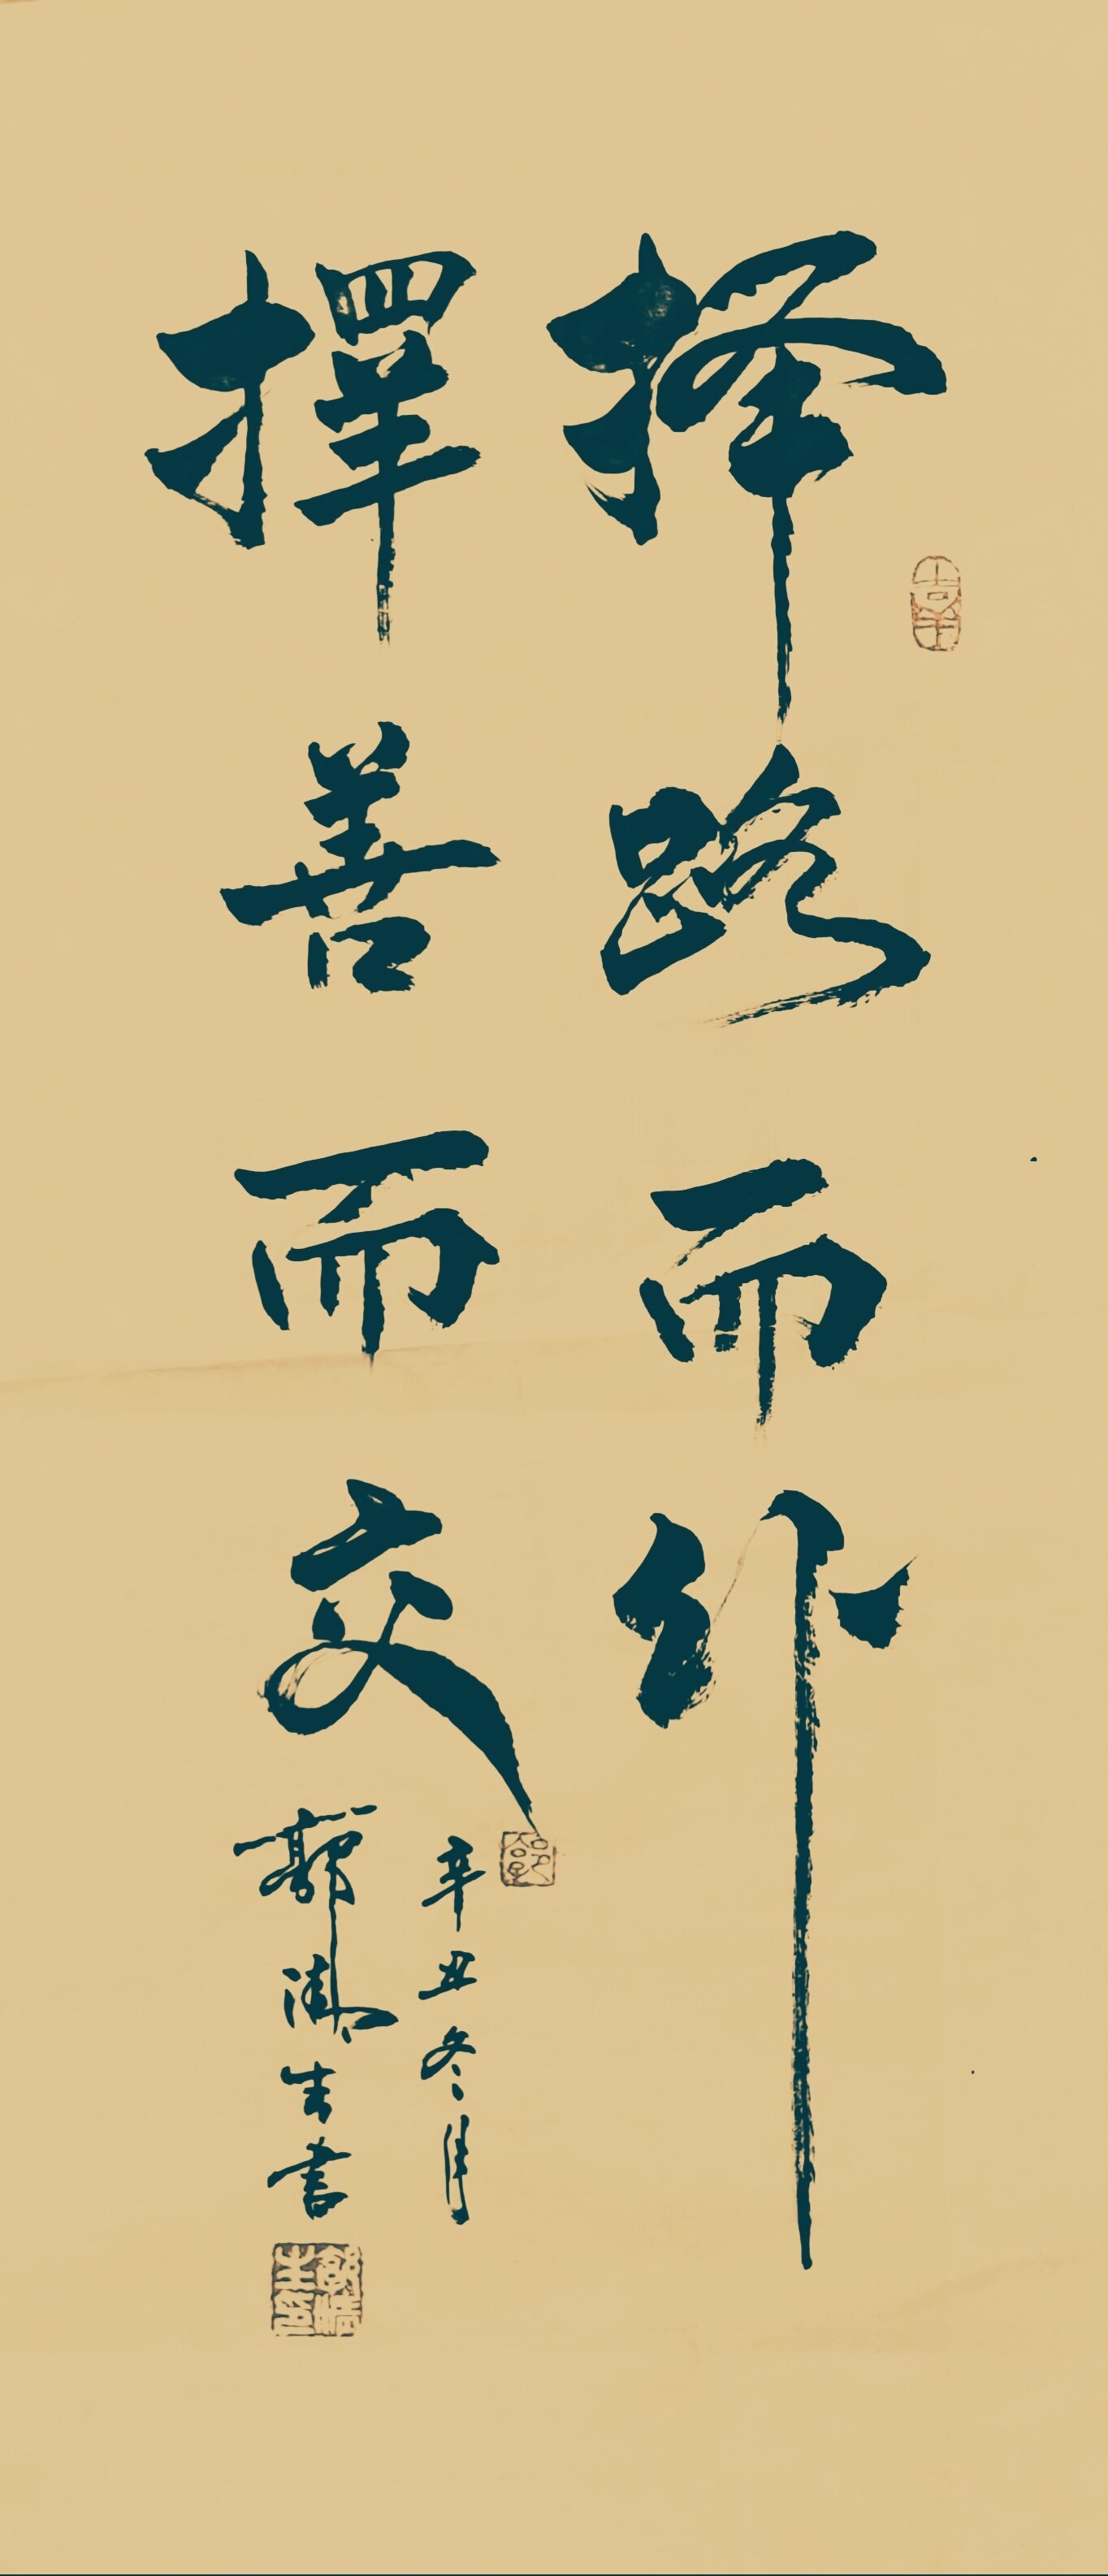 择路而行
擇善而交
辛丑冬月
郭生書
吉羊
郭